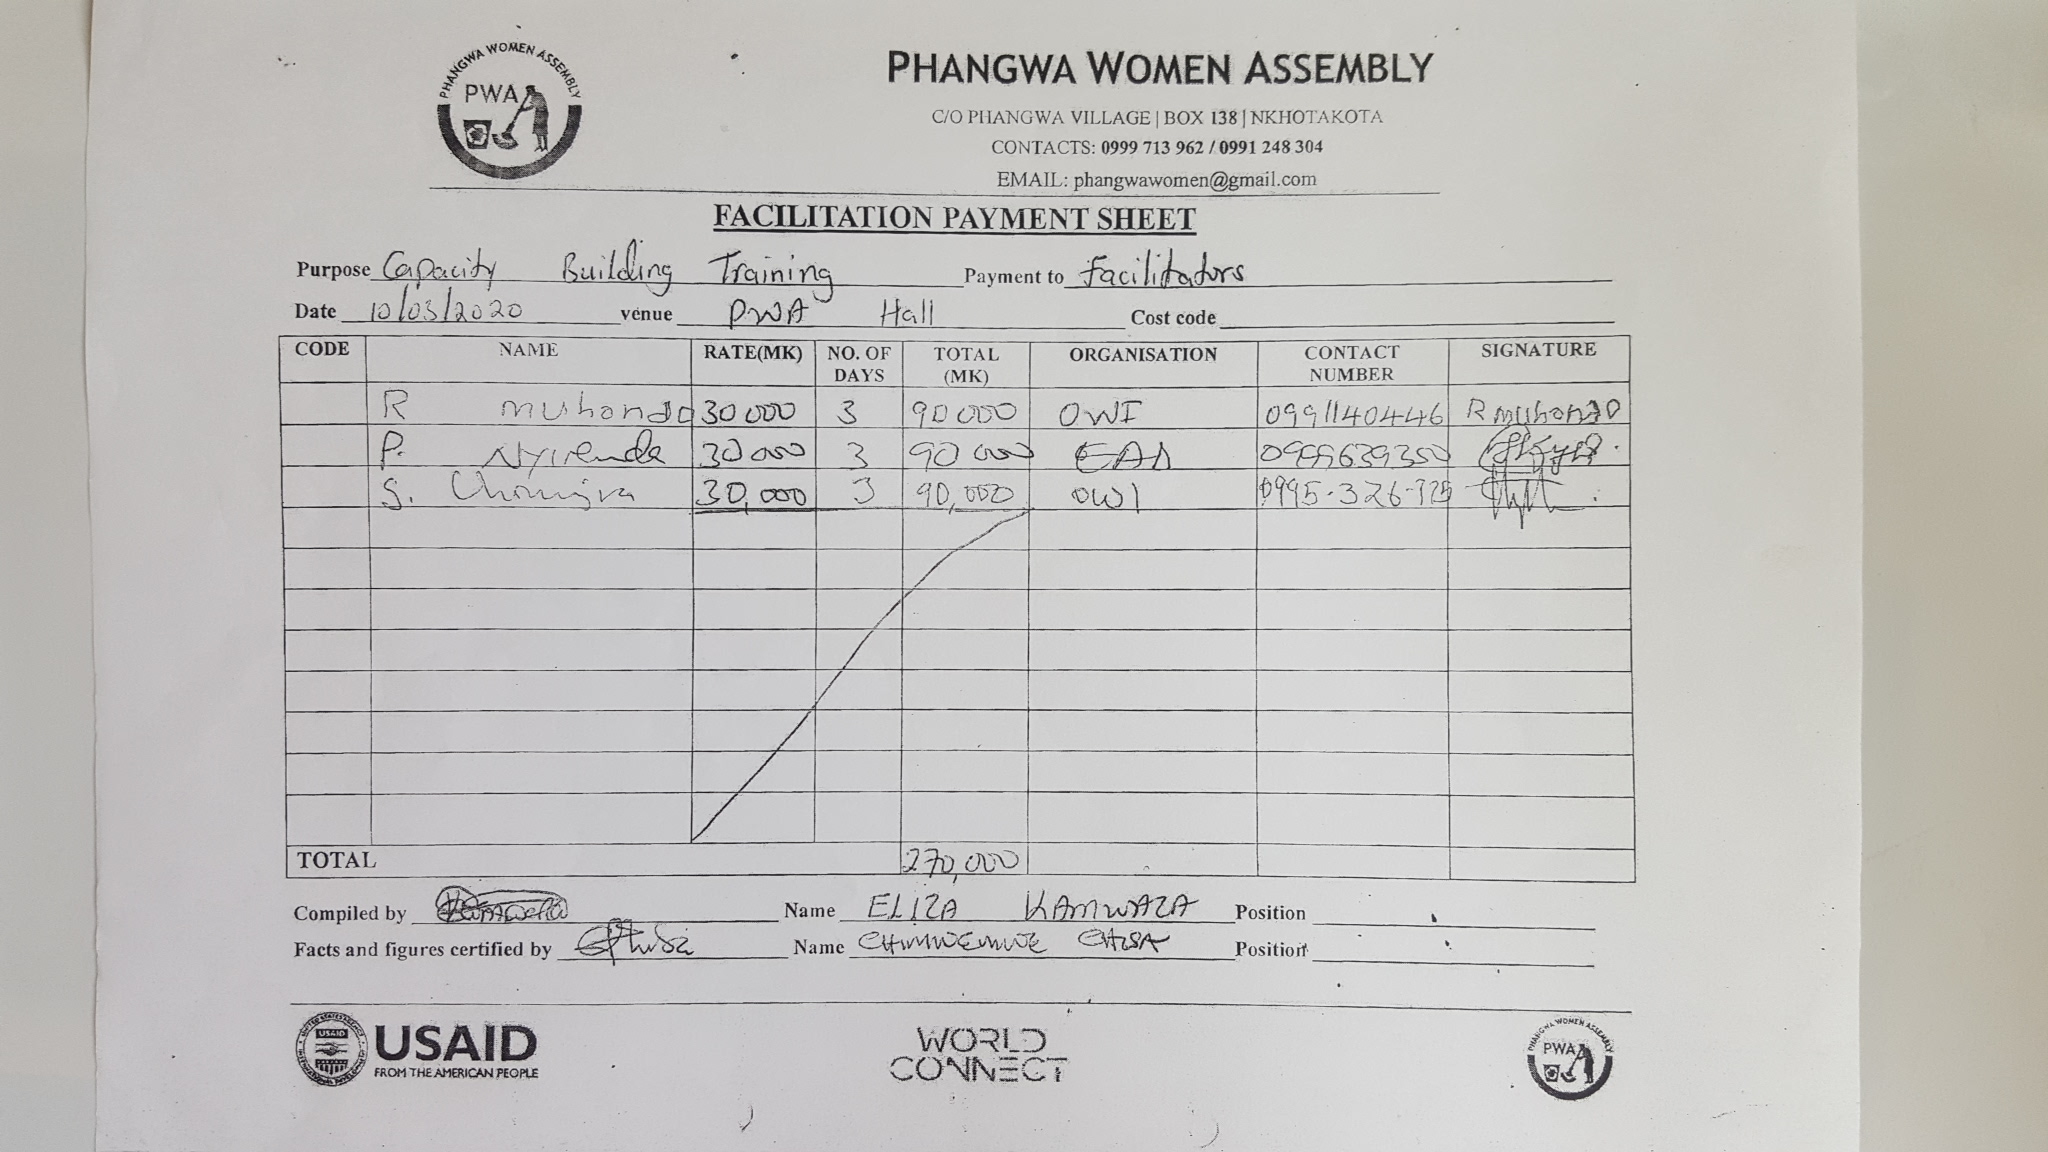 PHANGWA WOMEN ASSEMBLY
PWA
PHANGWA WOMEN ASSEMBLY
C/O PHANGWA VILLAGE | BOX 138 | NKHOTAKOTA
CONTACTS: 0999 713 962 / 0991 248 304
EMAIL: phangwawomen@gmail.com
FACILITATION PAYMENT SHEET
Purpose Capacity Building Training Payment to Facilitators
Date 10/03/2020 venue PWA Hall Cost code
CODE NAME RATE(MK) NO. OF DAYS TOTAL (MK) ORGANISATION CONTACT NUMBER SIGNATURE
R Muhondo 30 000 3 90 000 OWI 0991140446 R Muhondo
P. Nyirenda 30 000 3 90 000 EAD 0999639350
S. 30,000 3 90,000 OWI 0995-326-725
TOTAL 270,000
Compiled by Name ELIZA KAMWAZA Position
Facts and figures certified by Name CHIMWEMWE CHISA Position
USAID
USAID
FROM THE AMERICAN PEOPLE
WORLD
CONNECT
PHANGWA WOMEN ASSEMBLY
PWA